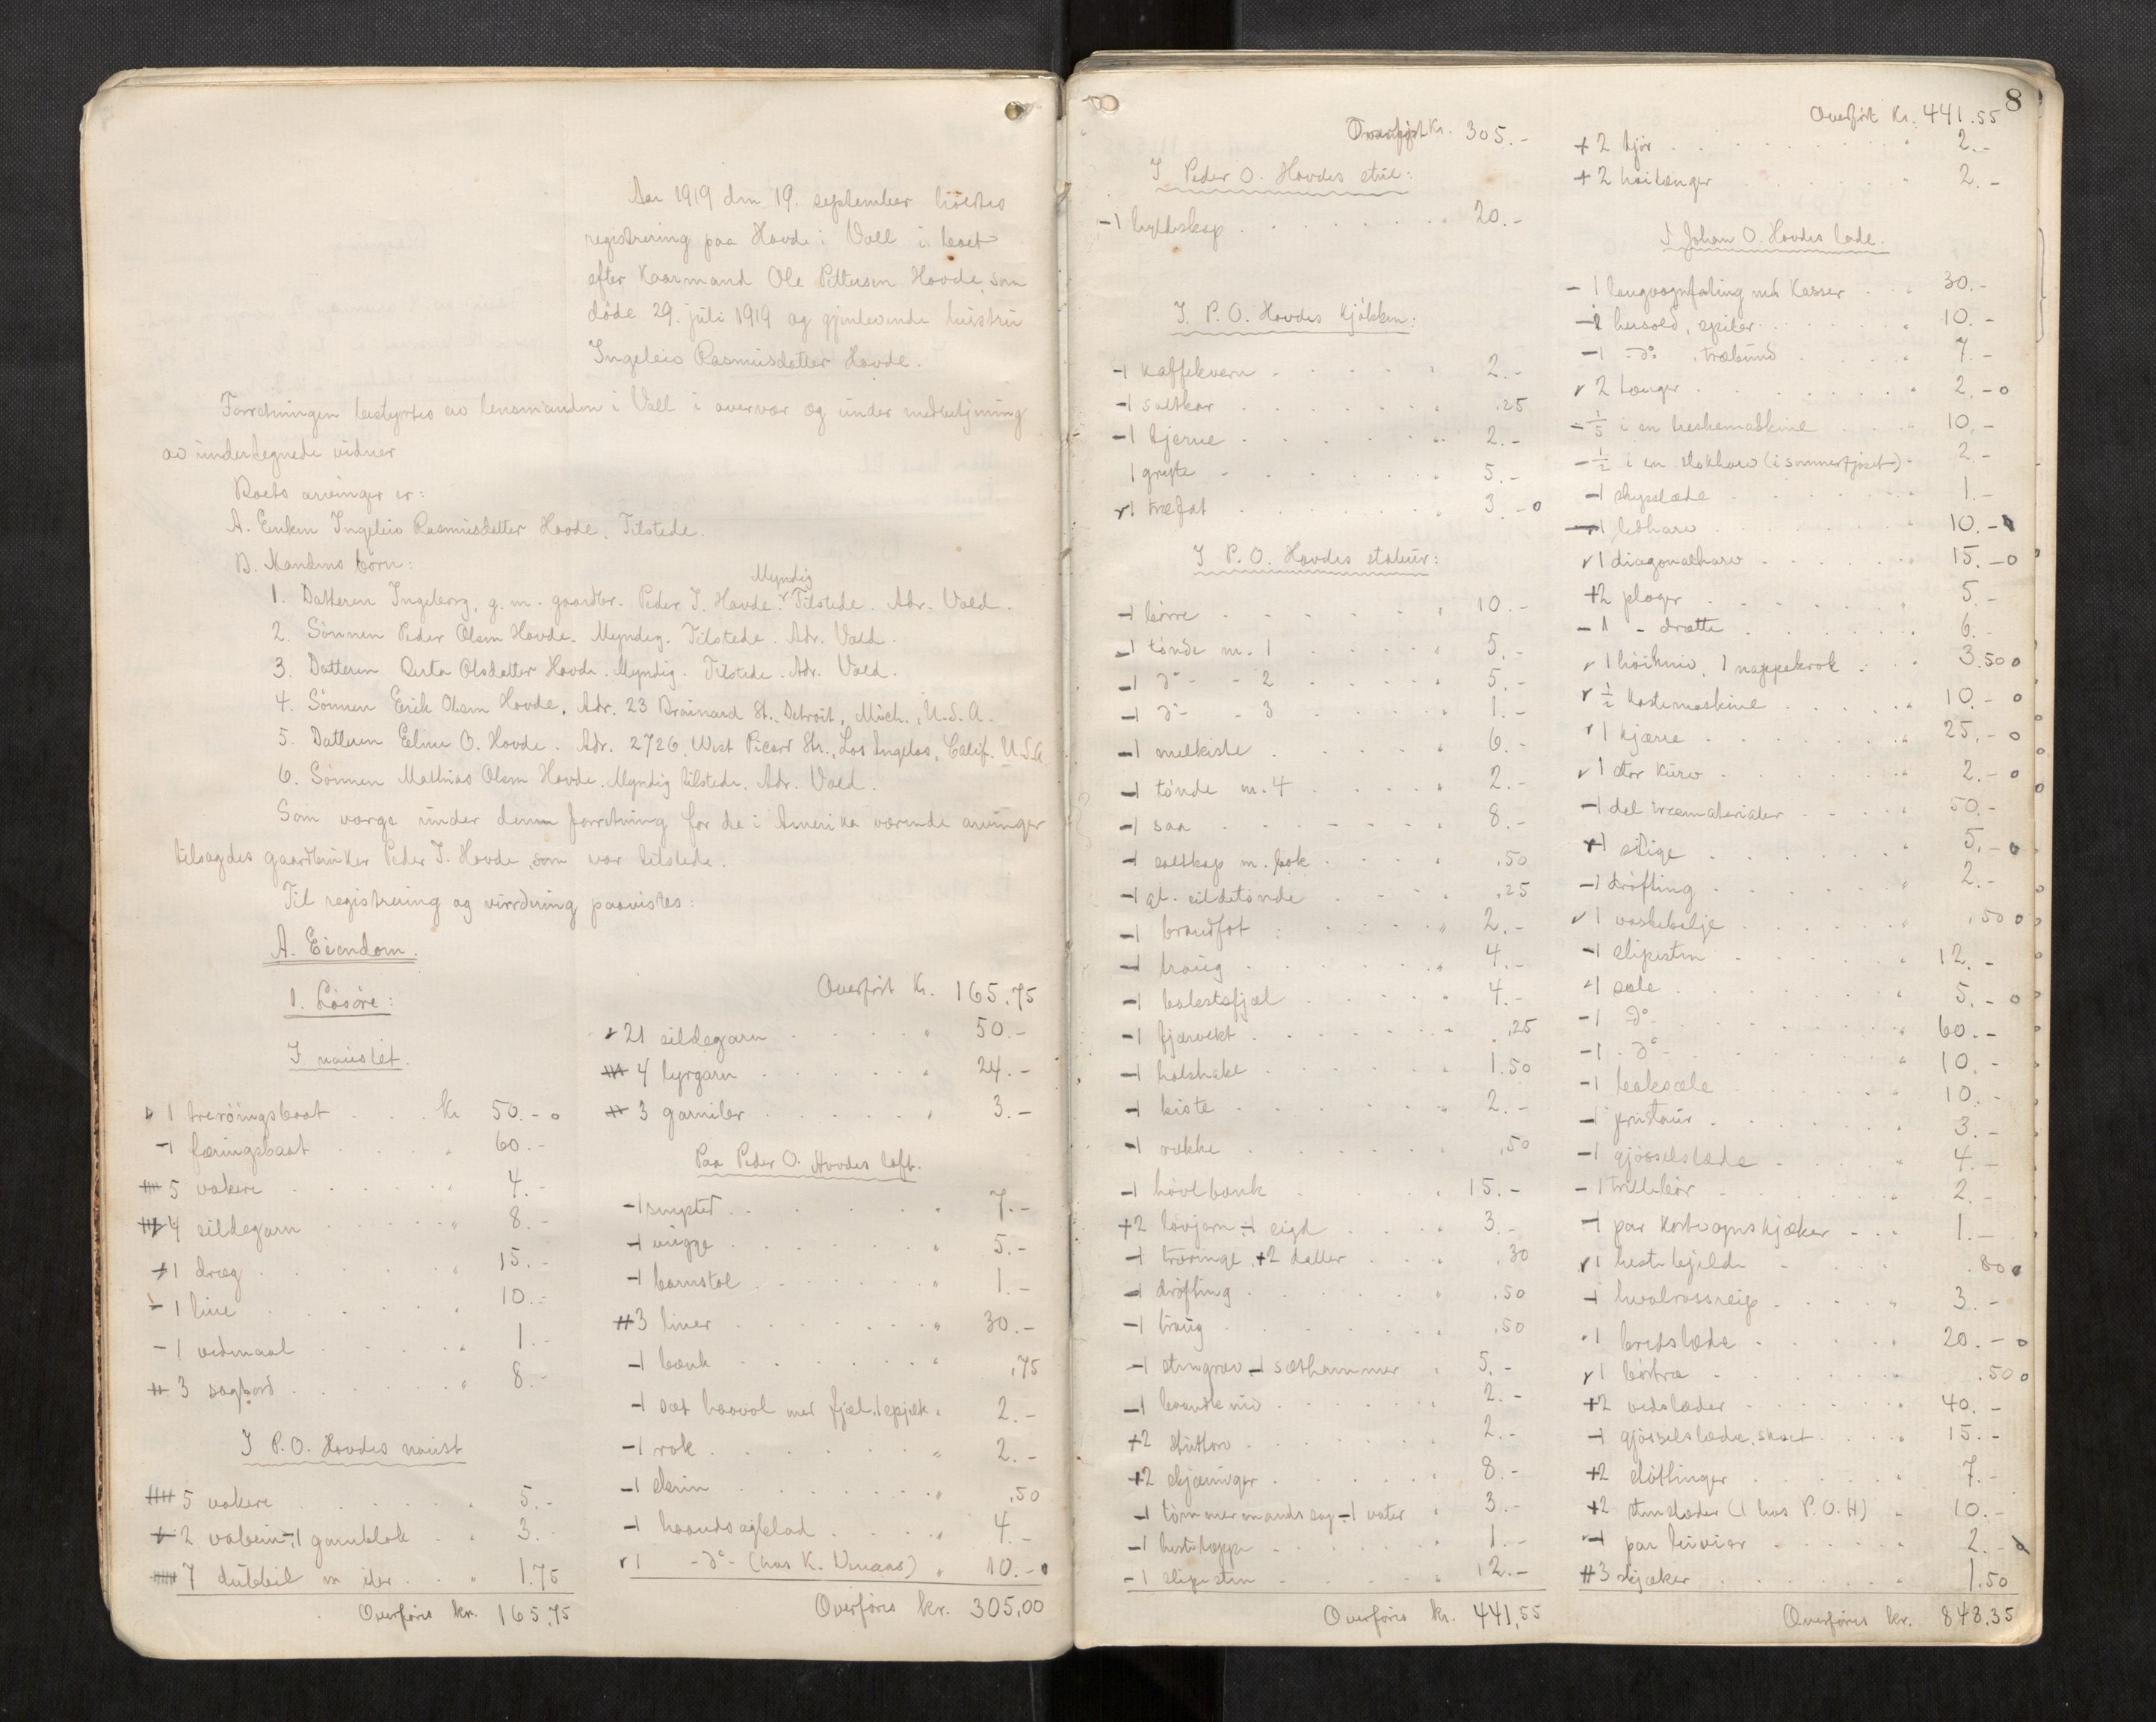 Aar 1919 den 19. september holdtes
registrering paa Hovde i Vold i boet
efter Kaarmand Ole Pettersen Hovde, som
döde 29. juli 1919 og gjenlevende hustru
Ingeleiv Rasmusdatter Hovde.
Forretningen bestyrtes av lensmanden i Voll i overvær og under medbetjening
av undertegnede vidner
Boets arvinger er:
A. Enken Ingeleiv Rasmusdatter Hovde. Tilstede.
B. Mandens börn:
Myndig
1. Datteren Ingeborg, g. m. gaardbr. Peder J. Hovde. Tilstede. Adr. Vold.
2. Sönnen Peder Olsen Hovde. Myndig. Tilstede. Adr. Vold.
3. Datteren Olsdatter Hovde. Myndig. Tilstede. Adr. Vold.
4. Sönnen Erik Olsen Hovde. Adr. 23 Brainard St., Detroit, Mich., U.S.A.
5. Datteren O. Hovde. Adr. 2726, West St., Los Angelos, Calif. U.S.A
6. Sönnen Mathias Olsen Hovde. Myndig tilstede. Adr. Vold.
Som værge under denne forretning for de i Amerika værende arvinger
tilsagdes gaardbruker Peder J. Hovde, som var tilstede.
Til registrering og vurdering paavistes:
A. Eiendom.
1. Lösöre:
I naustet.
1 treröingsbaat kr 50.-
1 færingsbaat " 60.-
5 vakere " 4.-
4 sildegarn " 8.-
1 dræg " 15.-
1 line " 10.-
1 vedmaal " 1.-
3 sagbord " 8.-
I P.O. Hovdes naust
5 vakere " 5.-
2 1 garnblok " 3.-
7 dubbel " 1.75
Overföres kr. 165,75
Overfört kr. 165,75
21 sildegarn " 50.-
4 lyrgarn " 24.-
3 garniler " 3.-
Paa Peder O. Hovdes loft.
1 " 7.-
1 vugge " 5.-
1 barnstol " 1.-
3 liner " 30.-
1 benk " ,75
1 sæt haavol med fjæl, " 2.-
1 rok " 2.-
1 skrin " ,50
1 haandsagblad " 4.-
1 -do- (hos K. ) " 10.-
Overföres kr. 305,00
8
Overfört Kr. 305.-
I Peder O. Hovdes stue:
1 hyldeskap 20.-
I. P.O. Hovdes Kjökken:
1 kaffekvern " 2.-
1 saltkar ,25
1 kjerne " 2.-
1 gryte " 5.-
1 træfat " 3.-
I P.O. Hovdes stabur:
1 börre " 10.-
1 tönde m. 1 " 5.-
1 do- - 2 " 5.-
1 do- - 3 " 1.-
1 melkiste " 6.-
1 tönde m. 4 " 2.-
1 saa " 8.-
1 saltkop m. lok " ,50
1 gl. sildetönde ,25
1 brandfot " 2.-
1 traug " 4.-
1 " 4.-
1 fjærvekt " ,25
1 halshake 1.50
1 kiste " 2.-
1 rekke ,50
1 hövlbenk " 15.-
2 lövjarn, 1 sigd " 3.-
1 træringe, 2 daller " ,30
1 dröfting " ,50
1 traug " ,50
1 stengrev, 1 sæthammer " 5.-
1 baandkniv " 2.-
2 stuttorv " 2.-
2 skjæringer " 8.-
1 tömmermandssag, 1 vater " 3.-
1 hesteteppe " 1.-
1 slipesten " 12.-
Overföres kr. 441,55
Overfört kr. 441.55
2 ljör " 2.-
2 höitænger " 2.-
I Johan O. Hovdes lade.
1 langvognfaling med Kasser " 30.-
1 hersold, spiler " 10.-
1 -do- , træbund " 7.-
2 tænger " 2.-
1/5 i en treskemaskine 10.-
1/2 i en stokharv (i sommerfjöset) 2.-
1 skysslæde " 1.-
1 ledharv " 10.-
1 diagonalharv " 15.-
2 ploger " 5.-
1 - drætte " 6.-
1 höikniv, 1 nappekrok " 3.50
1/2 kastemaskine " 10.-
1 kjærre " 25.-
1 stor kurv " 2.-
1 del træmaterialer " 50.-
1 stige " 5.-
1 dröfting " 2.-
1 vaskebalje " ,50
1 slipesten " 12.-
1 sæle " 5.-
1 -do- " 60.-
1 -do- " 10.-
1 baksæle " 10.-
1 " 3.-
1 gjödselslæde " 4.-
1 trillebör " 2.-
1 par kortvognskjæker " 1.-
1 hestebjelde .80
1 hvalrossreip " 3.-
1 bredslæde " 20.-
1 börtræ " .50
2 vedslæder " 40.-
1 gjödselslæde, skoet " 15.-
2 stöttinger " 7.-
2 stenslæder (1 hos P.O.H) " 10.-
1 par luvier " 2.-
3 skjæker " 1.50
Overföres kr. 848.35